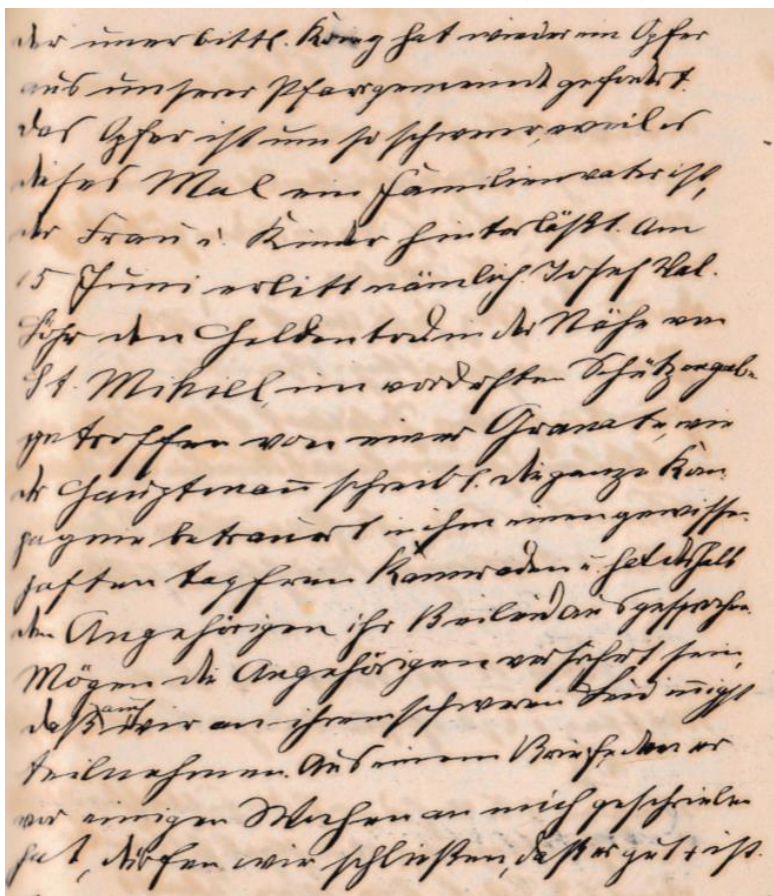 der unerbittl. Krieg hat wieder ein Opfer
aus unserer Pfarrgemeinde gefordert.
Das Opfer ist um so schwerer, weil es
dieses Mal ein Familienvater ist,
der Frau u. Kinder hinterläßt. Am
15 Juni erlitt nämlich Josef Val.
den Heldentod in der Nähe von
St. Mihiell, im vordersten Schützengrab.
getroffen von einer Granate, wie
der Hauptmann schreibt. Die ganze Kom
pagnie betrauert in ihm einen gewissen
haften tapfren Kameraden u. hat deshalb
den Angehörigen ihr Beileid ausgesprochen.
Mögen die Angehörigen versichert sein,
daß auch wir an ihrem schweren Leid innigst
teilnehmen. Aus einem Briefe, den er
vor einigen Wochen an mich geschrieben
hat, dürfen wir schließen, daß er gut